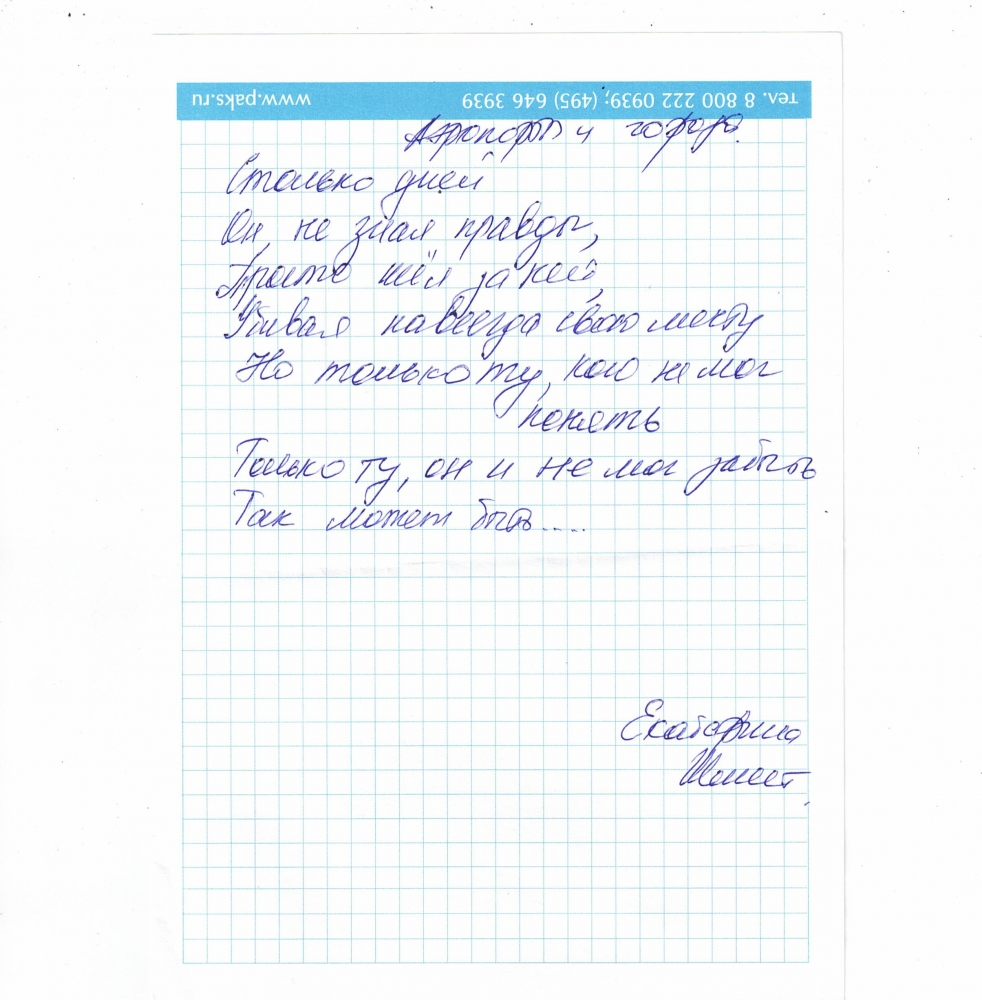 тел. 8 800 222 0939; (495) 646 3939 www.paks.ru
Аэропорты и города.
Столько дней
Он, не зная правды,
Просто шёл за ней,
Убивая навсегда свою мечту
Но только ту, кого не мог
понять
Только ту, он и не мог забыть
Так может быть....
Екатерина